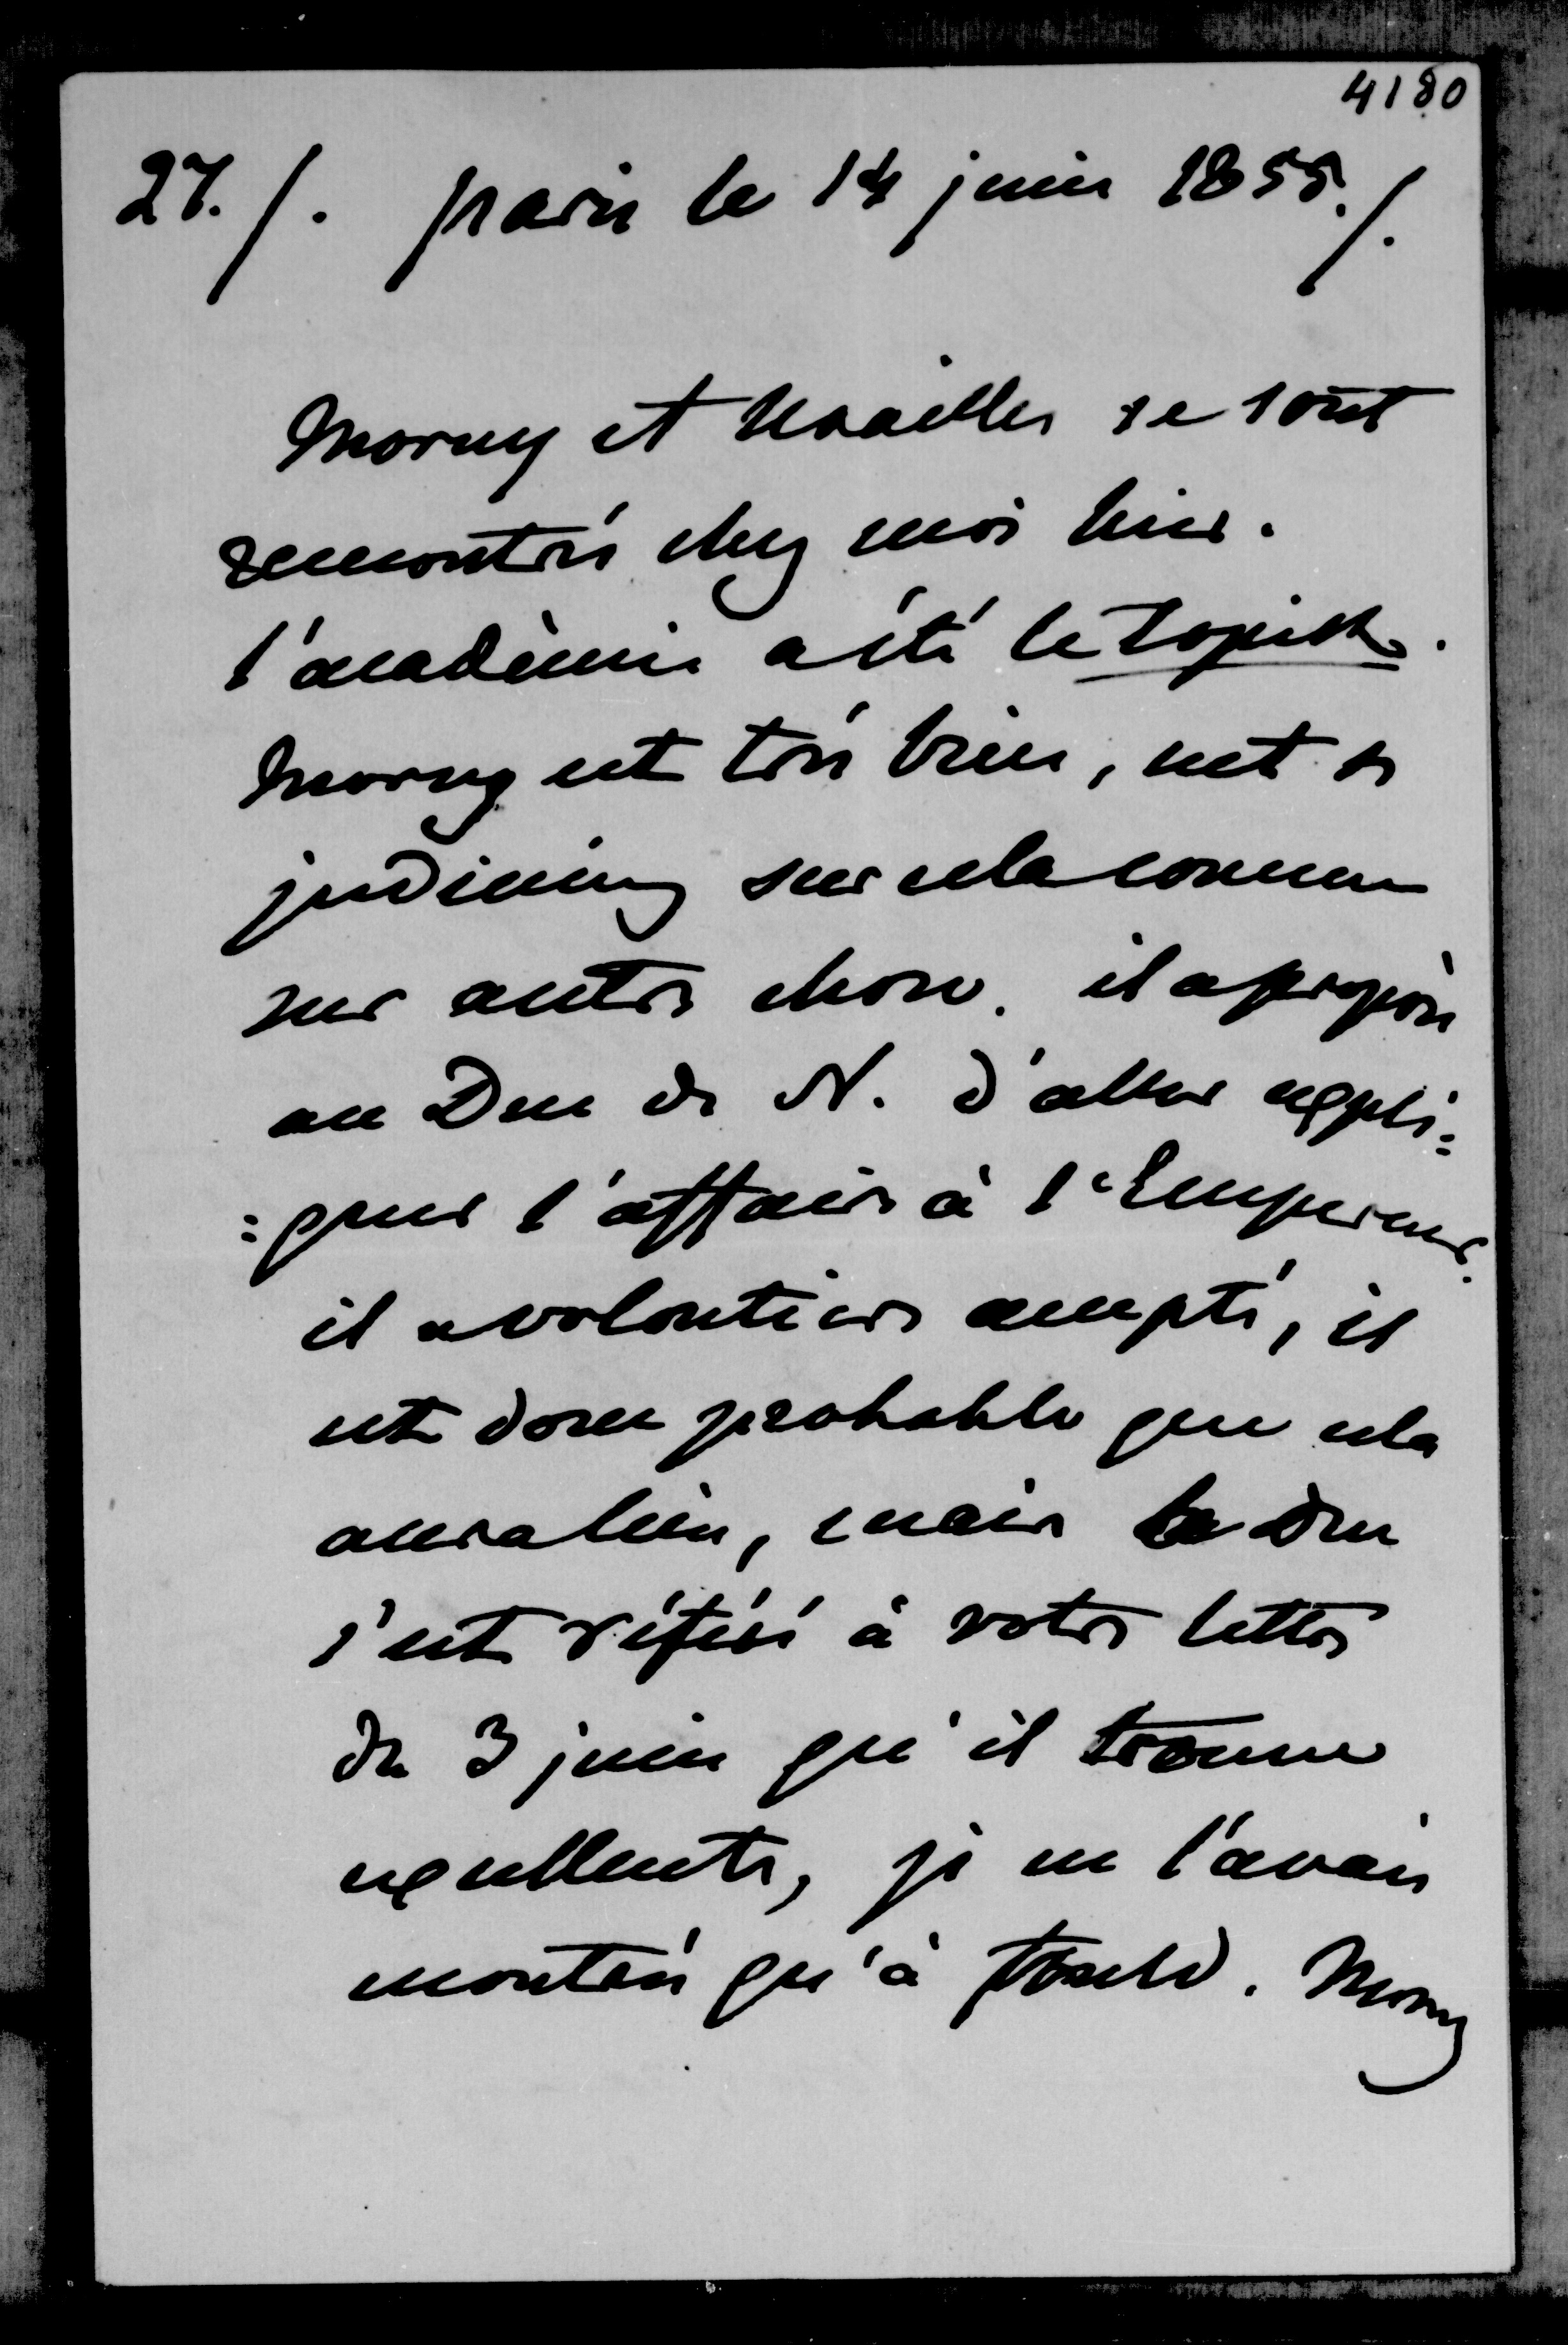 4180
27. /. paris le 14 juin 1855. /.
Morny et Noailles se sont
rencontrés chez moi hier.
l'académie a été le topick.
Morny est très bien, net &
judicieux sur cela comme
sur autre chose. il a proposé
au Duc de N. d'aller expli=
=quer l'affaire à l'Empereur.
il a volontiers accepté, il
est donc probable que cela
aura lieu, mais le Duc
s'est référé à votre lettre
du 3 juin qu'il trouve
excellente, je ne l'avais
montrée qu'à Fould. Morny